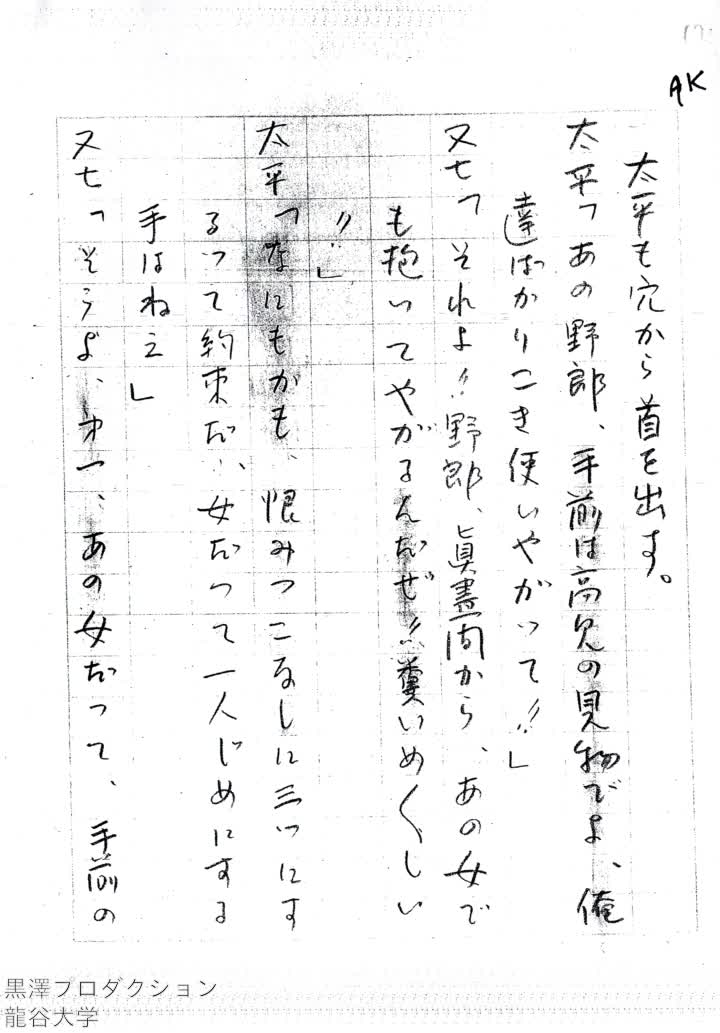 17
AK
太平も穴から首を出す。
太平「あの野郎、手前は高見の見物でよ、俺
達ばかりこき使いやがって!!」
又七「それよ!!野郎、眞晝間から、あの女で
も抱いてやがるんだぜ!!糞いめ〱しい
!!」
太平「なにもかも、恨みつこなしに三つにす
るって約束だ、女だって一人じめにする
手はねえ」
又七「そうよ、才一、あの女だって、手前の
黒澤プロダクション
龍谷大学